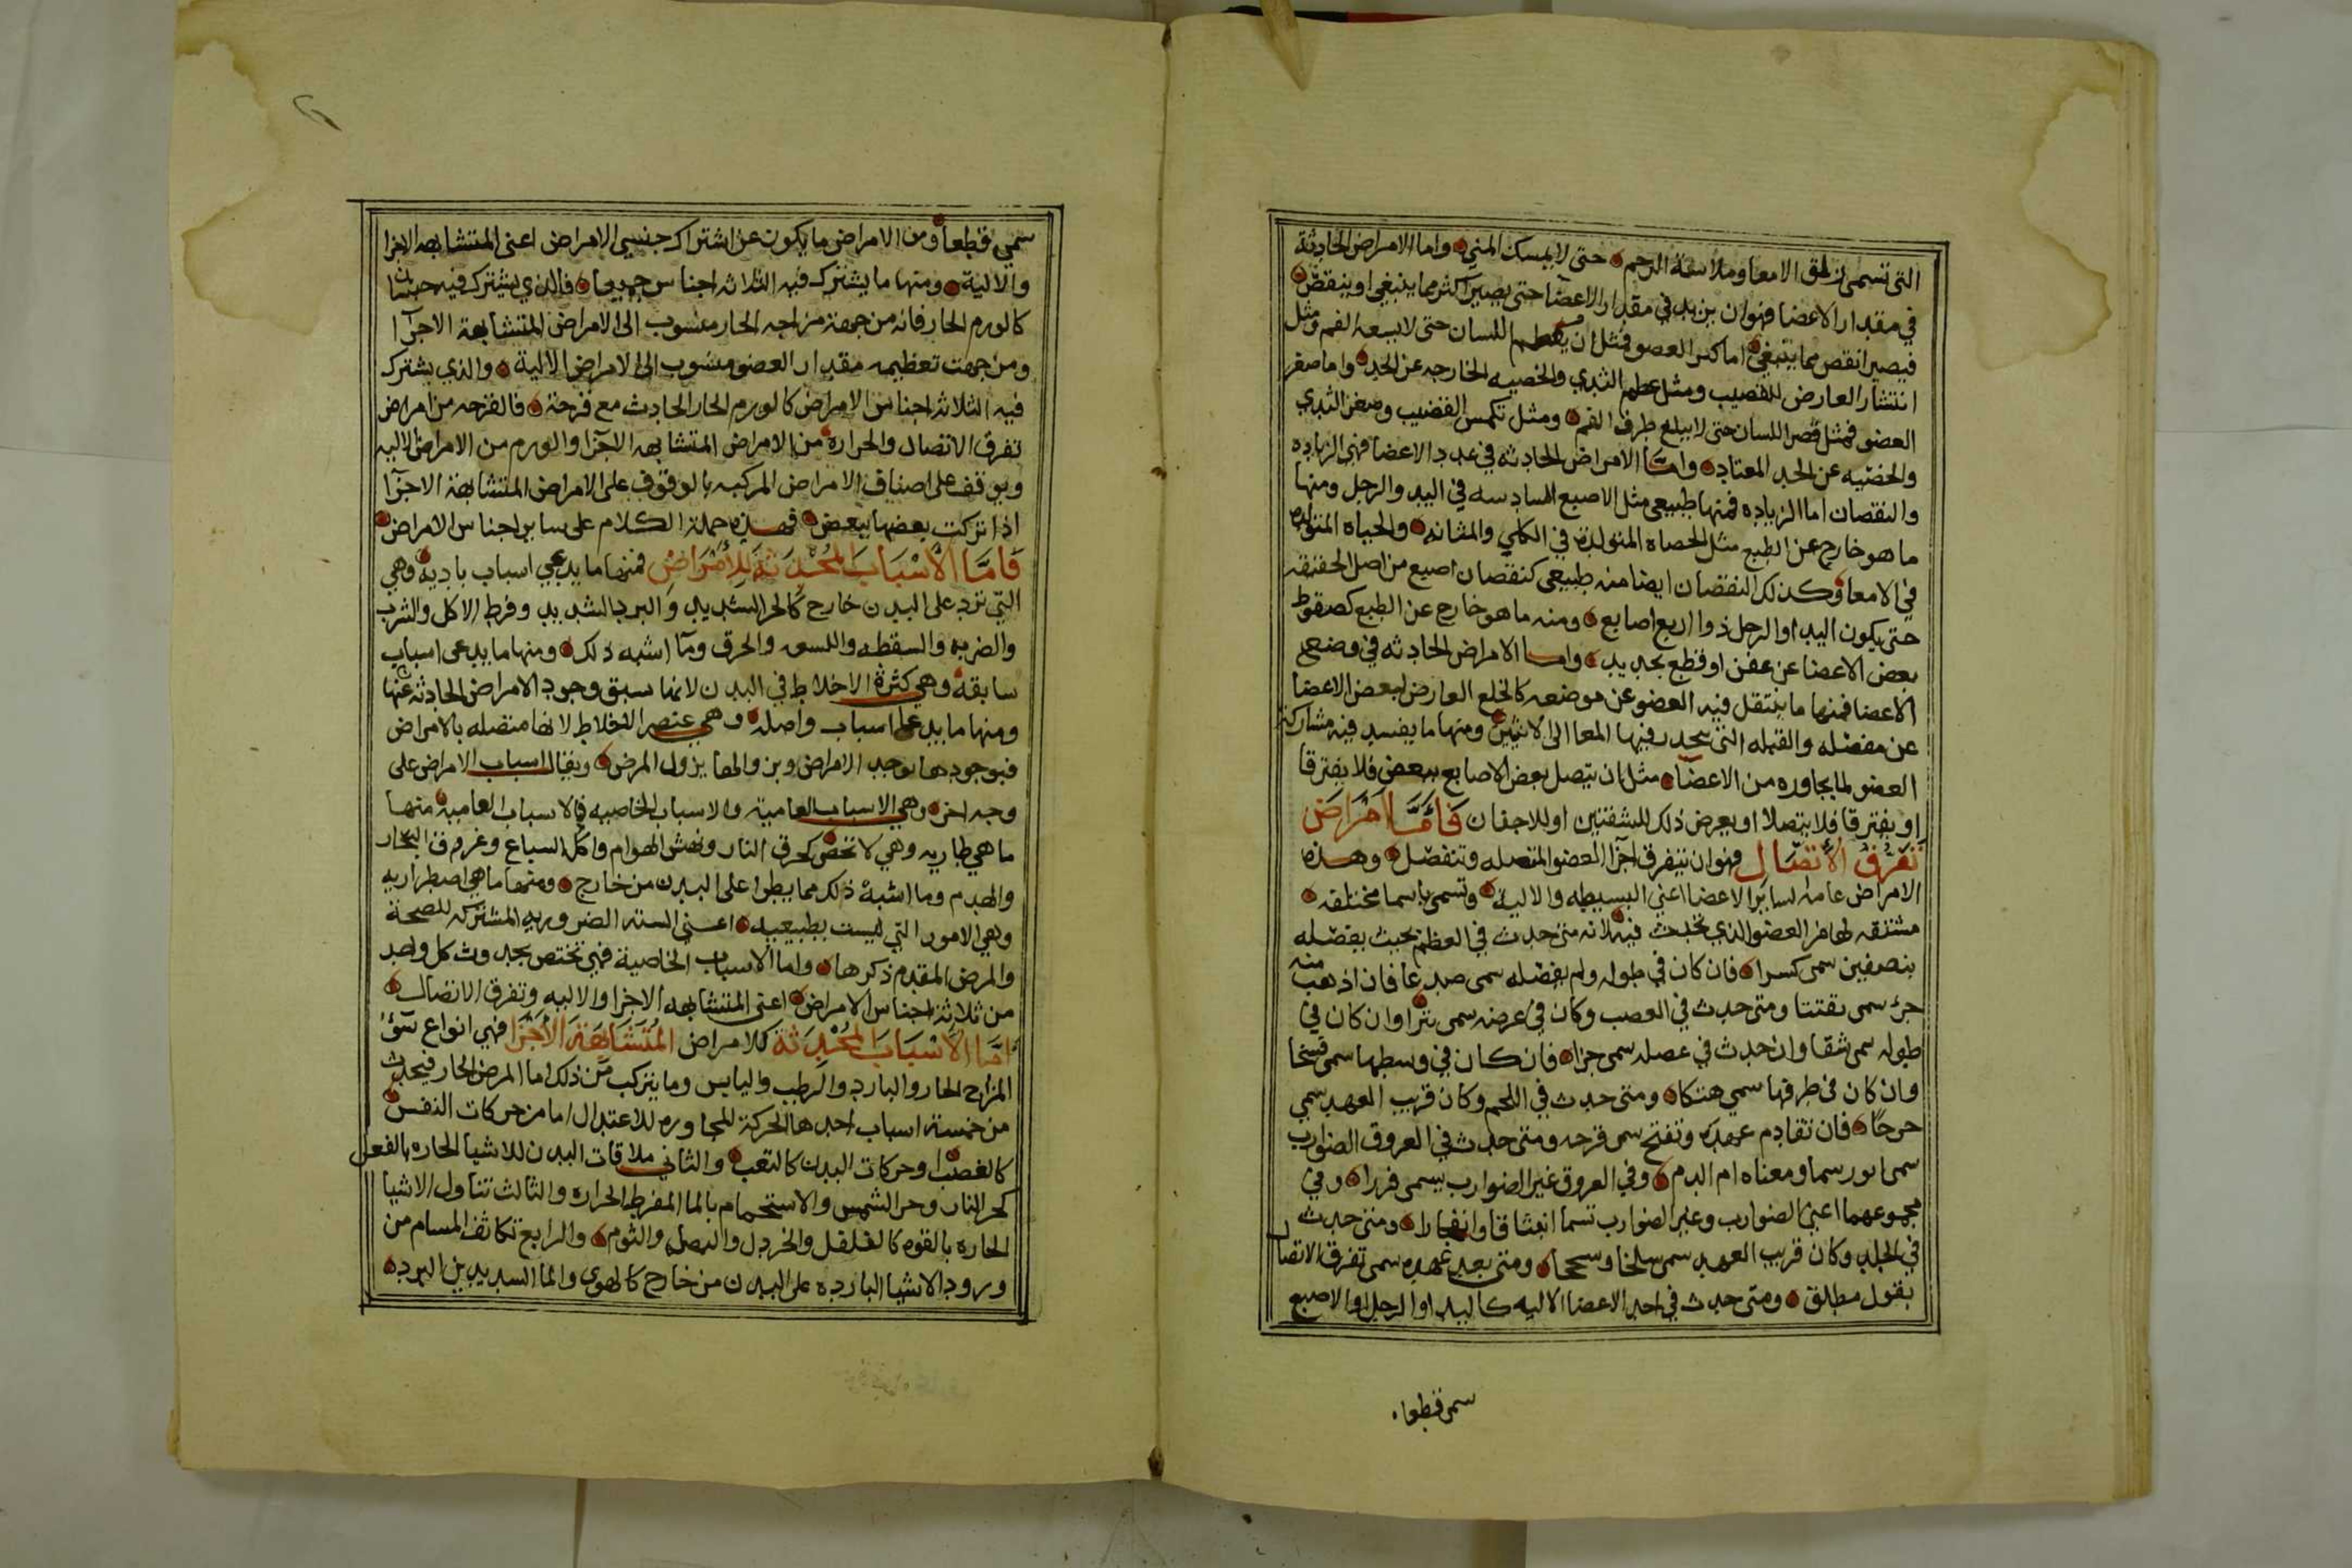 التى تسمى زلق الامعا وملاسة الرحم حتى لا يمسك المني واما الامراض الحادثة
في مقدار الاعضا فهو ان يزيد في مقدار الاعضا حتى يصير اكثر مما ينبغي او ينقص
فيصير انقص مما ينبغي اما كبر العضو فمثل ان يعظم اللسان حتى لا يسعه الفم ومثل
انتشار العارض للقضيب ومثل عظم الثدي والخصيه الخارجه عن الحد واما صغر
العضو فمثل قصر اللسان حتى لا يبلغ طرف الفم ومثل تكمس القضيب وصغر الثدي
والخصيه عن الحد المعتاد وامّا الامراض الحادثه في عدد الاعضا فهي الزياده
والنقصان اما الزياده فمنها طبيعي مثل الاصبع السادسه في اليد والرجل ومنها
ما هو خارج عن الطبع مثل الحصاه المتولدة في الكلي والمثانه والحياه المتولده
في الامعا وكذلك النقصان ايضا منه طبيعي كنقصان اصبع من اصل الخلقه
حتى يكون اليد او الرجل ذو اربع اصابع ومنه ما هو خارج عن الطبع كصقوط
بعض الاعضا عن عفن او قطع بحديد واما الامراض الحادثه في وضع
الاعضا فمنها ما ينتقل فيه العضو عن موضعه كالخلع العارض لبعض الاعضا
عن مفصله والقيله التي ينحدر فيها المعا الى الانثيين ومنها ما يفسد فيه مشاركة
العضو لما يجاوره من الاعضا مثل ان يتصل بعض الاصابع ببعض فلا يفترقا
او يفترقا فلا يتصلا او يعرض ذلك للشفتين او للاجفان فَامَّا اَمْرَاضَ
تَفَرُقُ الأتصَال فهو ان يتفرق اجزا العضو المتصله وتنفصل وهذه
الامراض عامه لساير الاعضا اعني البسيطه والاليه وتسمى باسما مختلفه
مشتقه لها من العضو الذي تحدث فيه لانه متى حدث في العظم بحيث يفصله
بنصفين سمى كسرا فان كان في طوله ولم يفصله سمى صدعا فان اذهب منه
جزء سمى تفتتا ومتى حدث في العصب وكان في عرضه سمى بترا وان كان في
طوله سمى شقا وان حدث في عضله سمى جزا فان كان في وسطها سمى فسخا
وان كان في طرفها سمى هتكا ومتى حدث في اللحم وكان قريب العهد سمي
جرحًا فان تقادم عهده وتفتح سمى قرحه ومتى حدث في العروق الضوارب
سمى انورسما ومعناه ام الدم وفي العروق غير الضوارب يسمى فزرا وفي
مجموعهما اعني الضوارب وغير الضوارب تسما انبثاقا وانفجارا ومتى حدث
في الجلد وكان قريب العهد سمى سلخا وسحجا ومتى بعد عهده سمى تفرق الاتصال
بقول مطلق ومتى حدث في احد الاعضا الاليه كاليد او الرجل او الاصبع
سمى قطعا
سمي قطعا ومن الامراض ما يكون عن اشتراك جنسي الامراض اعنى المتشابهه الاجزا
والالية ومنها ما يشترك فيه الثلاثه اجناس جميعا فالذي يشترك فيه جنسان
كالورم الحار فانه من جهة مزاجه الحار منسوب الى الامراض المتشابهة الاجزآ
ومن جهت تعظيمه مقدار العضو منسوب الى الامراض الالية والذي يشترك
فيه الثلاثه اجناس الامراض كالورم الحار الحادث مع قرحة فالقرحه من امراض
تفرق الاتصال والحراره من الامراض المتشابهه الاجزا والورم من الامراض الاليه
ويوقف على اصناف الامراض المركبه بالوقوف على الامراض المتشابهة الاجزآ
اذا تركبت بعضها ببعض فهذه جملة الكلام على ساير اجناس الامراض
فَامَّا الأَسْبَابَ المُحْدَثَةَ لِلأمْرَاضْ فمنها ما يدعي اسباب باديه وهي
التى ترد على البدن خارج كالحر الشديد والبرد الشديد وفرط الاكل والشرب
والضربه والسقطه واللسعه والحرق وما اشبه ذلك ومنها ما يدعى اسباب
سابقه وهي كثرة الاخلاط في البدن لانها سبق وجود الامراض الحادثه عنها
ومنها ما يدعى اسباب واصله وهي عنصر الاخلاط لانها متصله بالامراض
فبوجودها توجد الامراض وبزوالها يزول المرض ويقال اسباب الامراض على
وجه اخر وهي الاسباب العامية والاسباب الخاصيه فالاسباب العاميه منها
ما هي طاريه وهي لا تخص كحرق النار ونهش الهوام واكل السباع وغرق في البحار
والهدم وما اشبه ذلك مما يطرا على البدن من خارج ومنها ما هي اضطراريه
وهي الامور التي ليست بطبيعيه اعنى السته الضروريه المشتركه للصحة
والمرض المقدم ذكرها واما الاسباب الخاصية فهي تختص بحدوث كل واحد
من ثلاثة اجناس الامراض اعنى المتشابهه الاجزا والاليه وتفرق الاتصال
امّا الأسْبَابَ المُحْدَثَة للامراض المُتَشَابِهَةَ الأجْزَا فهي انواع سوء
المزاج الحار والبارد والرطب واليابس وما يتركب من ذلك اما المرض الحار فيحدث
من خمسة اسباب احدها الحركة المجاوره للاعتدال اما من حركات النفس
كالغضب او حركات البدن كالتعب والثاني ملاقات البدن للاشيا الحاره بالفعل
كحر النار وحر الشمس والاستحمام بالما المفرط الحراره والثالث تناول الاشيا
الحاره بالقوه كالفلفل والخردل والبصل والثوم والرابع تكاثف المسام من
ورود الاشيا البارده على البدن من خارج كالهوى والما الشديدين البرده